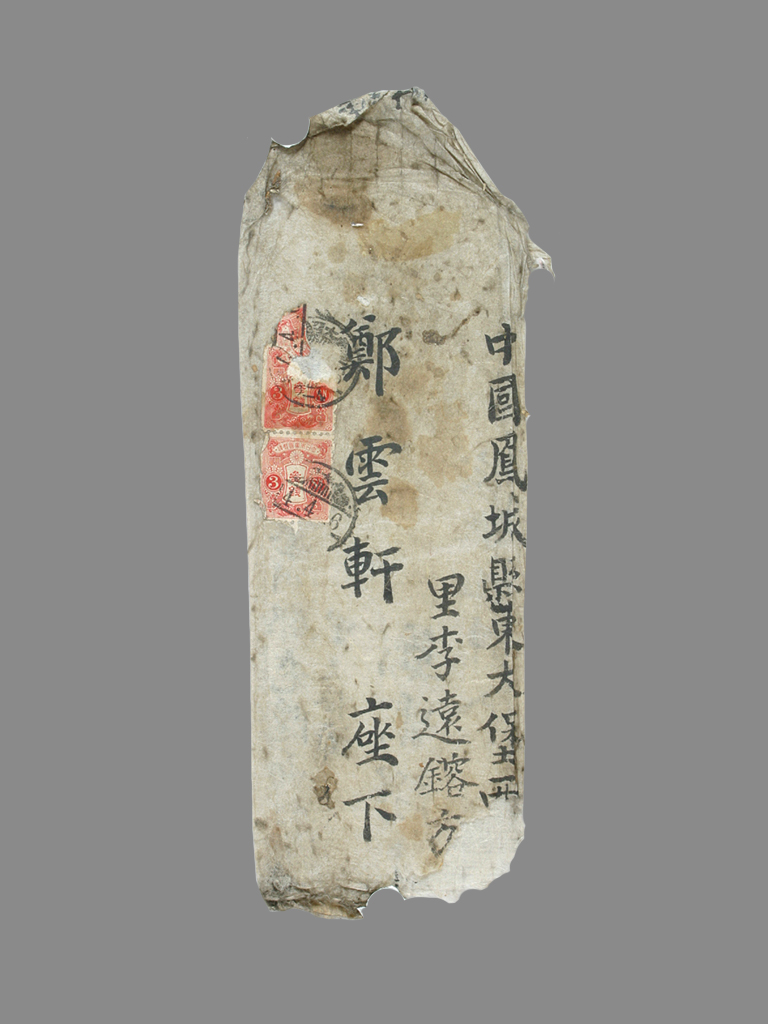 中國鳳城縣東大堡
里李遠鎔方
鄭雲軒 座下
3
3